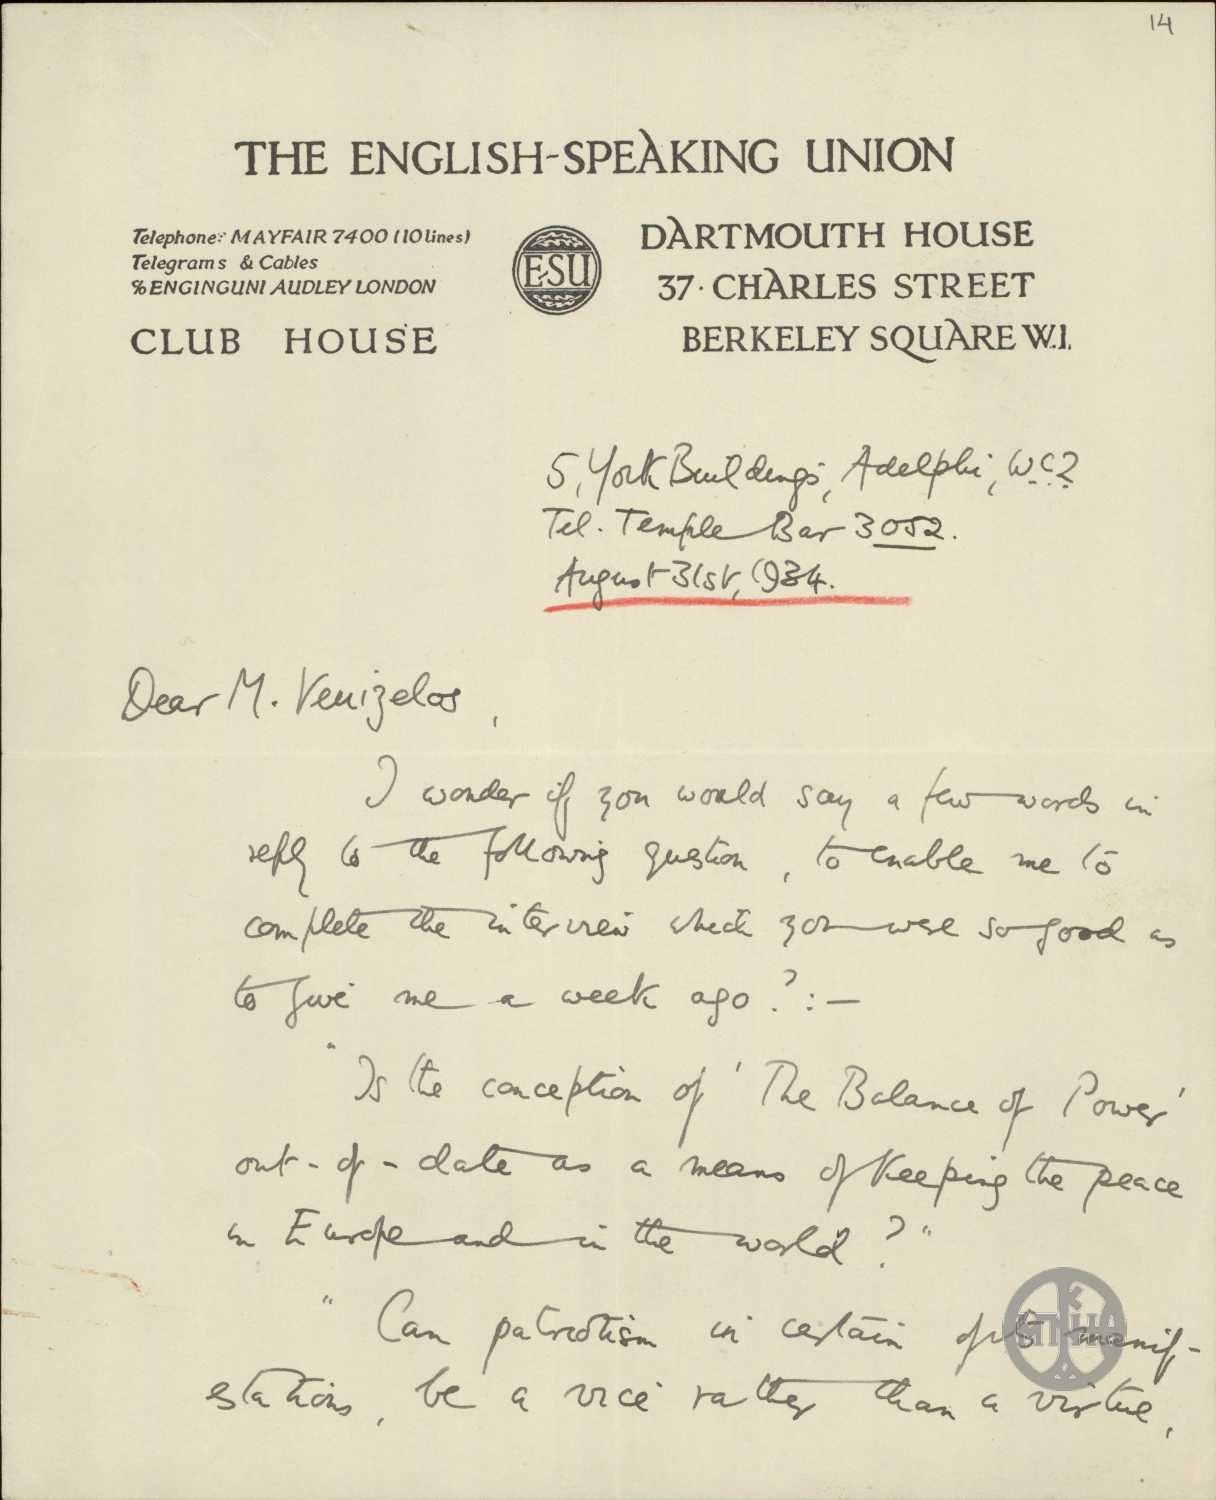 14
THE ENGLISH-SPEAKING UNION
Telephone: MAYFAIR 7400 (10 lines)
Telegrams & Cables
℅ ENGINGUNI AUDLEY LONDON
CLUB HOUSE
E·SU
DARTMOUTH HOUSE
37· CHARLES STREET
BERKELEY SQUARE W.1.
5, York Buildings, Adelphi, W.C.2
Tel. Temple Bar 3052.
August 31st, 1934.
Dear M. Venizelos,
I wonder if you would say a few words in
reply to the following question, to enable me to
complete the interview which you were so good as
to give me a week ago?:—
"Is the conception of 'The Balance of Power'
out-of-date as a means of keeping the peace
in Europe and in the world?"
"Can patriotism in certain of its manif-
estations, be a vice rather than a virtue,